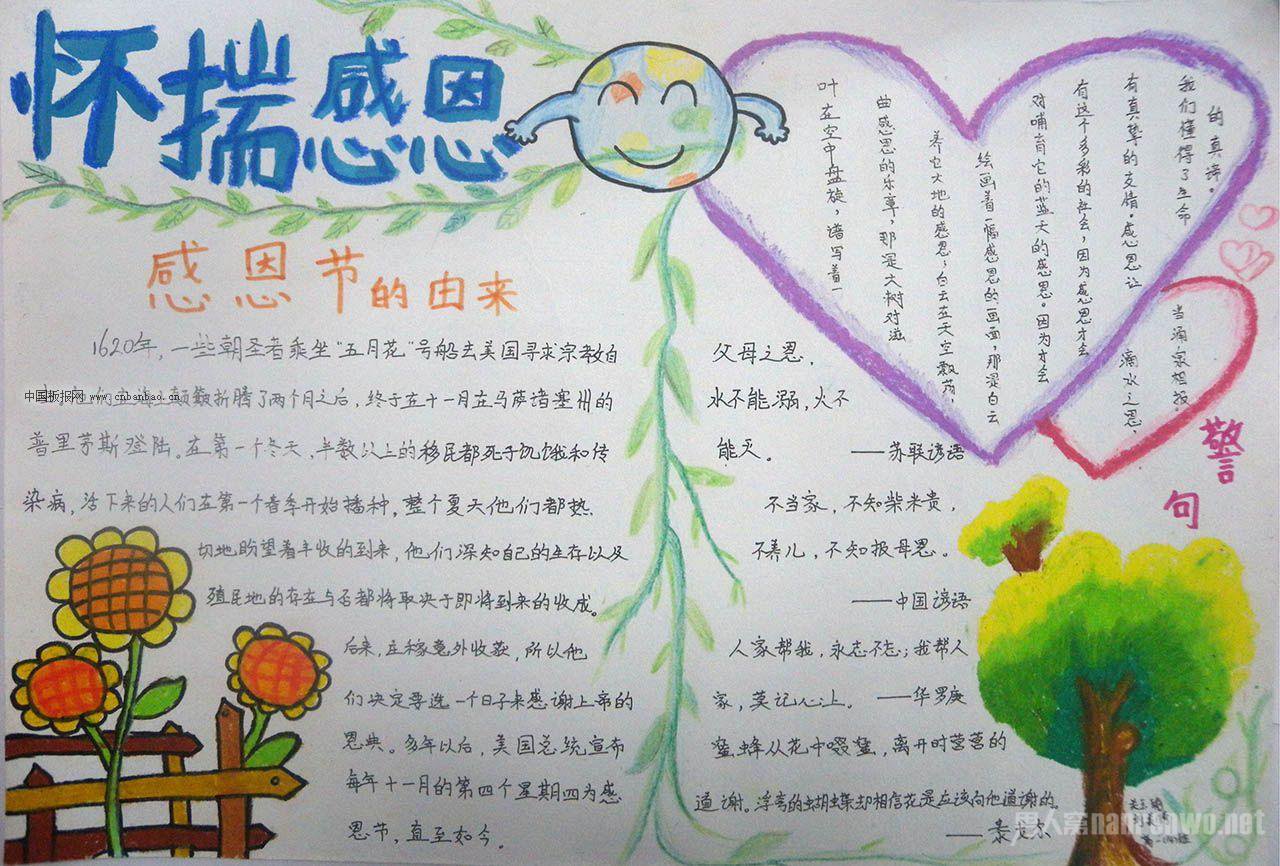 怀揣感恩
感恩节的由来
1620年，一些朝圣者乘坐“五月花”号船去美国寻求宗教自
中国板报网 www.cnbanbao.cn
他们在海上颠簸折腾了两个月之后，终于在十一月在马萨诸塞州的
普里茅斯登陆。在第一个冬天，半数以上的移民都死于饥饿和传
染病，活下来的人们在第一个春季开始播种，整个夏天他们都热
切地盼望着丰收的到来，他们深知自己的生存以及
殖民地的存在与否都将取决于即将到来的收成。
后来，庄稼意外收获，所以他
们决定要选一个日子来感谢上帝的
恩典。多年以后，美国总统宣布
每年十一月的第四个星期四为感
恩节，直至如今。
叶在空中盘旋，谱写着一
曲感恩的乐章，那是大树对滋
养它大地的感恩；白云在天空飘荡，
绘画着一幅感恩的画面，那是白云
对哺育它的蓝天的感恩。因为才会
有这个多彩的社会，因为感恩才会
有真挚的友情。感恩让
我们懂得了生命
的真谛。
滴水之恩，
当涌泉相报。
警句
父母之恩，
水不能溺，火不
能灭。 ——苏联谚语
不当家，不知柴米贵，
不养儿，不知报母恩。
——中国谚语
人家帮我，永志不忘；我帮人
家，莫记心上。 ——华罗庚
蜜蜂从花中啜蜜，离开时营营的
道谢。浮夸的蝴蝶却相信花是应该向他道谢的。
——泰戈尔
男人窝nanrenwo.net